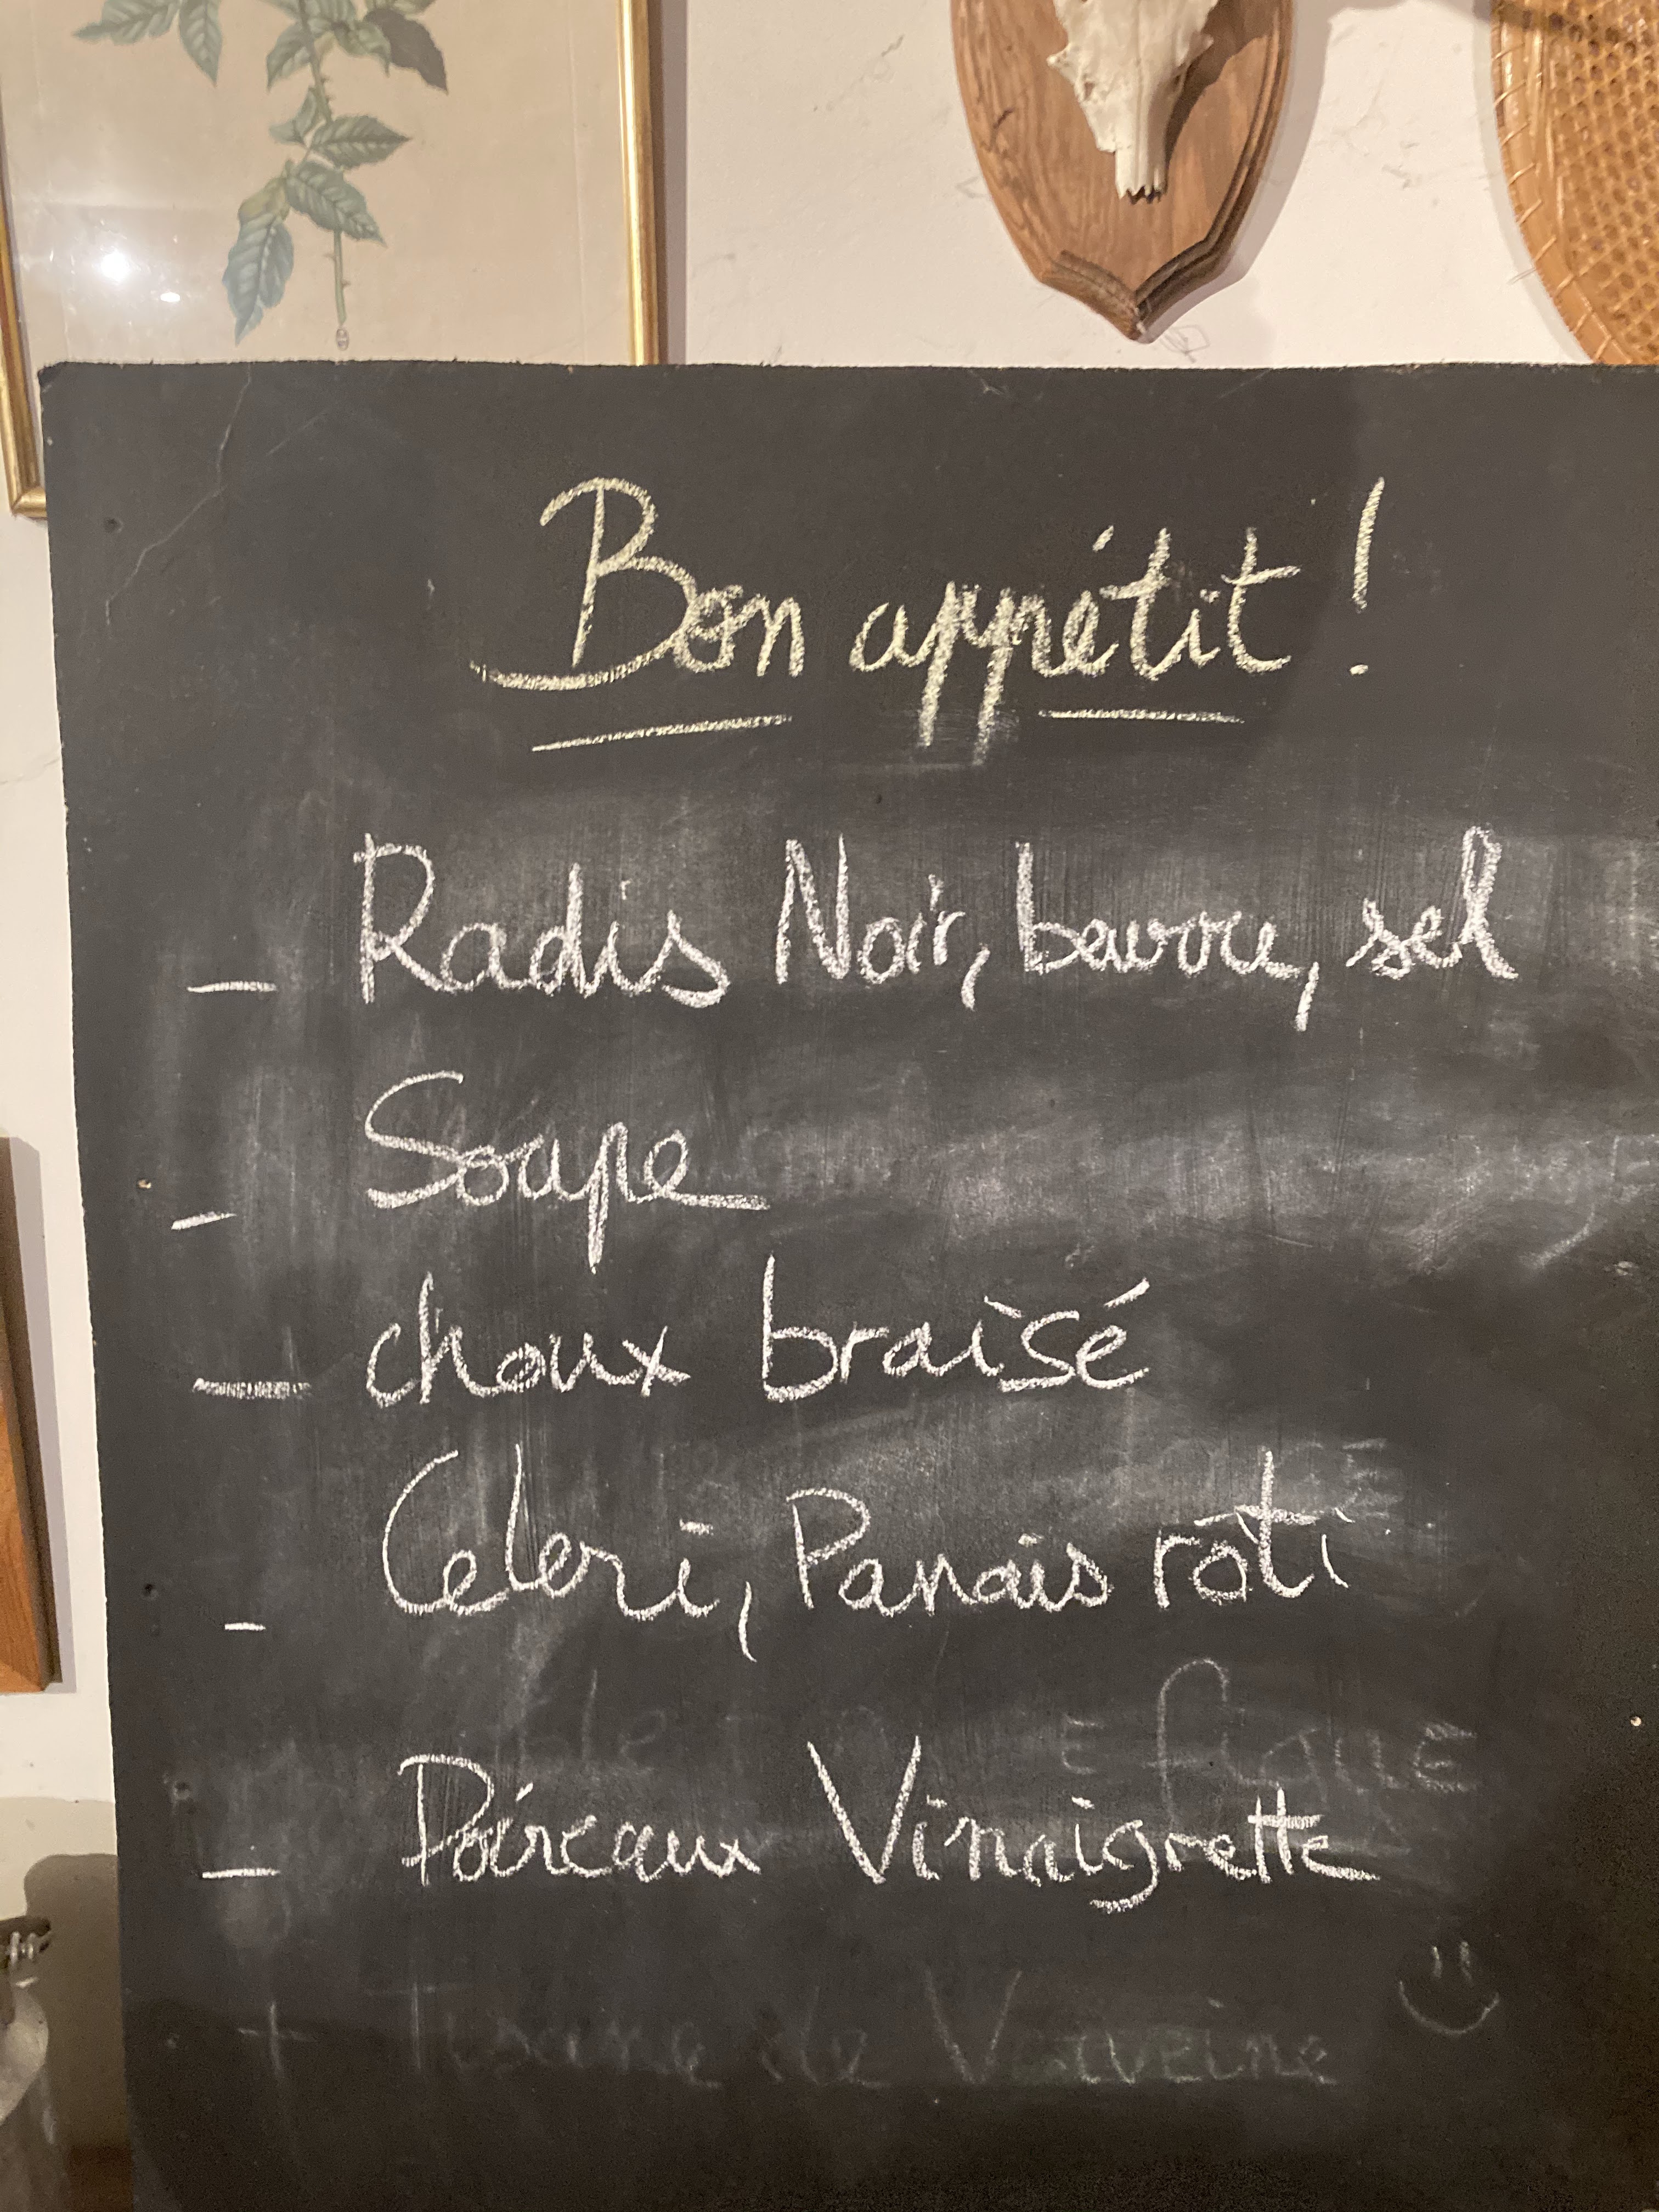 Bon appétit !
– Radis Noir, beurre, sel
– Soupe
– choux braisé
– Celeri, Panais rôti
– Poireaux Vinaigrette
+ Tisane de Verveine